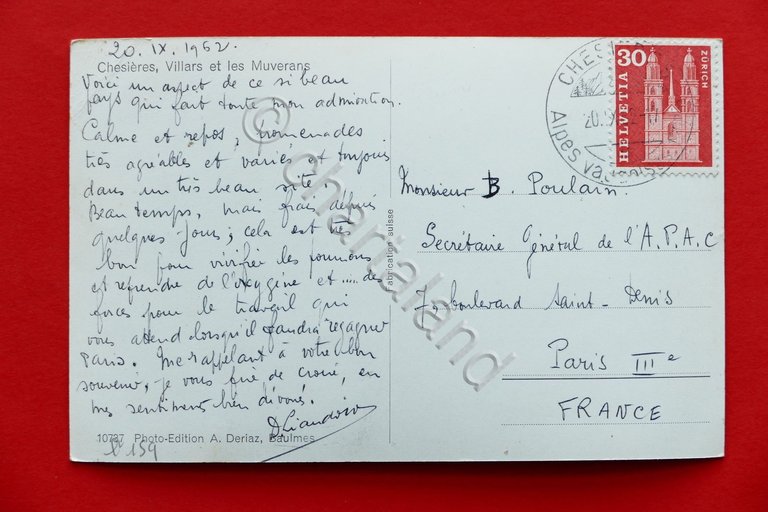 20. IX. 1962.
Chesières, Villars et les Muverans
Voici un aspect de ce si beau
pays qui fait toute mon admiration.
Calme et repos, promenades
très agréables et variées et toujours
dans un très beau site.
Beau temps, mais frais depuis
quelques jours; cela est très
bon pour vivifier les poumons
et reprendre de l'oxygène et .... des
forces pour le travail qui
vous attend lorsqu'il faudra regagner
Paris. Me rappelant à votre bon
souvenir, je vous prie de croire, en
mes sentiments bien dévoués.
10737 Photo-Edition A. Deriaz, Baulmes
159
fabrication suisse
CHESI
20. 9
Alpes vaudoises
30
HELVETIA
ZÜRICH
Monsieur B. Poulain.
Secrétaire Général de l'A.P.A.C
boulevard Saint-Denis
Paris IIIe
FRANCE
© chartaland